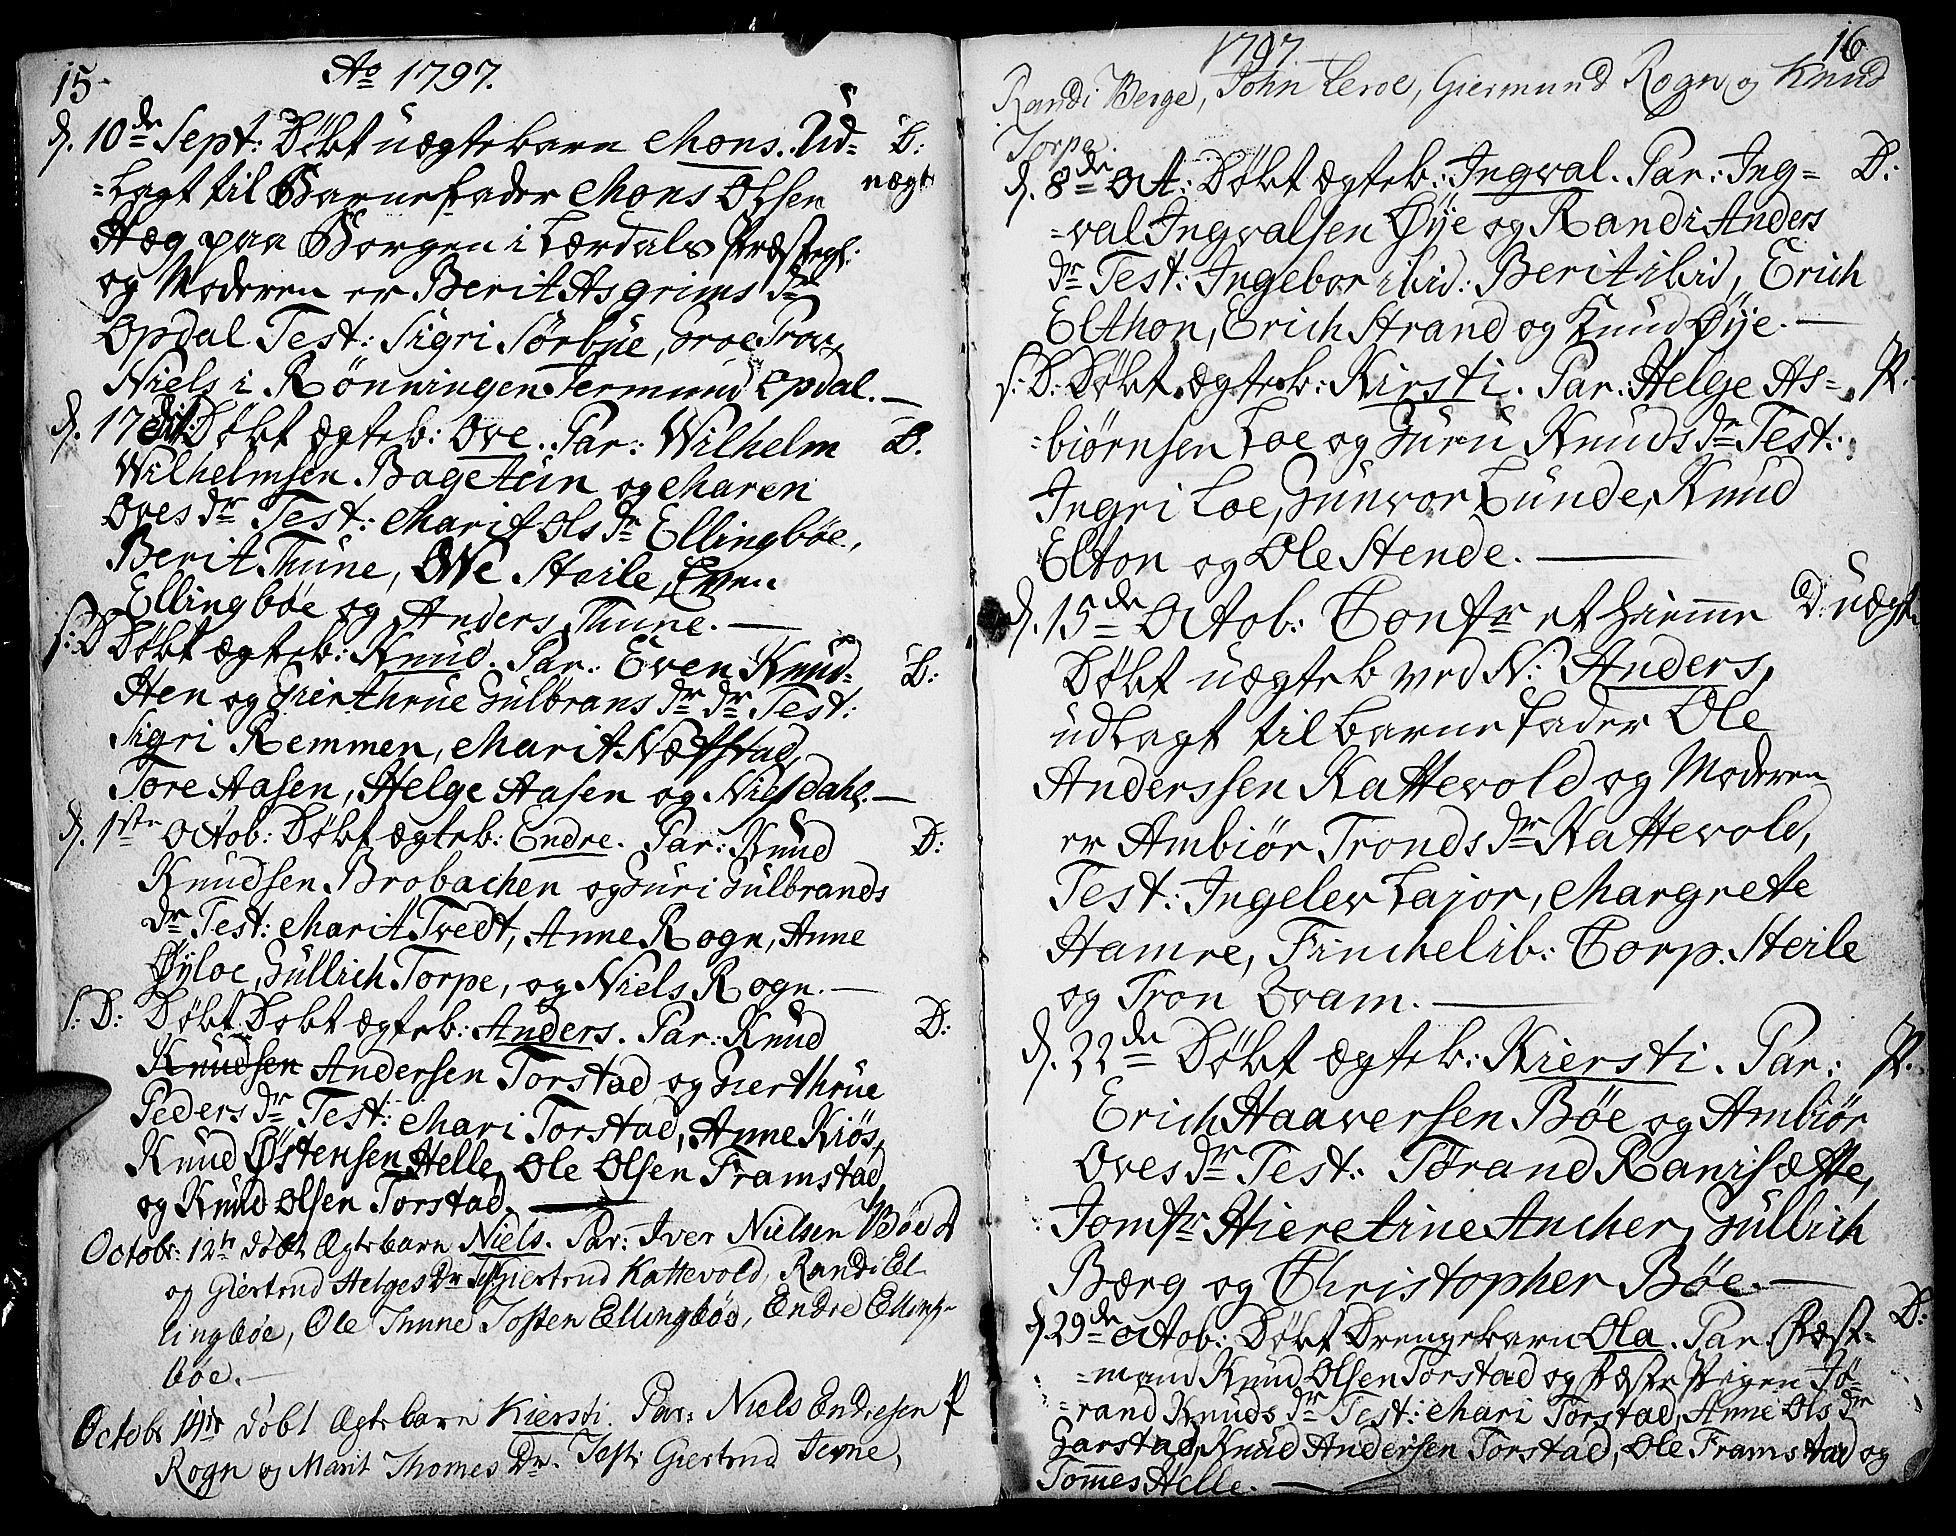 15.
Ao 1797.
d. 10de Sept: Døbt uægtebarn Mons. Ud= D:
=lagt til Barnefader Mons Olsen uægt
Hæg paa Borgen i Lærdals Præstegl:
og Moderen er Berit Asgrims Dr
Opdal Test: Sigri Sørbye, Groe
Niels i Rønningen Germund Opdal. —
d. 17de Døbt ægteb: Ove. Par: Wilhelm D.
Wilhelmsen Bagstein og Maren
Oves Dr Test: Marit Ols Dr Ellingbøe,
Berit Thune, Ove Steile, Even
Ellingbøe og Anders Thune. —
s: D Døbt ægteb: Knud. Par: Even Knud- D:
Hen og Gierthrue Gulbrans Dr Dr Test:
Sigri Remmen, Marit Næfstad,
Tore Aasen, Helge Aasen og Niels Dahl. —
d. 1ste Octob: Døbt ægteb: Endre. Par: Knud D:
Knudsen Brobachen og Guri Gulbrands
Dr Test: Marit Tvedt, Anne Rogn, Anne
Øyloe, Gullich Torpe, og Niels Rogn. —
s: D: Døbt Døbt ægteb: Anders. Par: Knud D:
Knudsen Andersen Torstad og Gierthrue
Peders Dr Test: Mari Torstad, Anne Kiøs,
Knud Østensen Helle, Ole Olsen Framstad,
og Knud Olsen Torstad. —
Octobr: 12te døbt Ægtebarn Niels. Par: Iver Nielsen Bøe D
og Giertrud Helges Dr Test: Giertrud Kattevold, Randi El-
lingbøe, Ole Thune Tosten Ellingbøe, Endre Elling-
bøe. —
Octobr 14de døbt Ægtebarn Kiersti. Par: Niels Endresen P
Rogn og Marit Thomes Dr. Test: Giertrud Terne,
1797
16
Randi Berge, John Leroe, Giermund Rogn og Knud
Torpe.
d. 8de Oct: Døbt ægteb: Ingval. Par: Ing= D:
=val Ingvalsen Øye og Randi Anders
Dr Test: Ingebor ibid: Berit ibid, Erich
Elthon, Erich Strand og Knud Øye. —
s: D: Døbt ægteb: Kirsti. Par: Helge As= P.
=biørnsen Loe og Guru Knuds Dr Test:
Ingri Loe, Gunvor Lunde, Knud
Elton og Ole Stende. —
d. 15de Octob: Confr et hiemme D: uægt
Døbt uægteb ved N: Anders,
udlagt til barnefader Ole
Anderssen Kattevold og Moderen
er Ambiør Tronds Dr Kattevold,
Test: Ingelev Lajor, Margrete
Hamre, Finchelib: Corp. Steile
og Tron Qvam. —
d. 22de Døbt ægteb: Kiersti. Par: P.
Erich Haaversen Bøe og Ambiør
Oves Dr Test: Tørand Ranisætte,
Jomfr Hieretine Ancher, Gullich
Bærg og Christopher Bøe. —
d. 29de Octob: Døbt Drengebarn Ola. Par Fæst- D:
=mand Knud Olsen Torstad og Fæste Pigen Jø-
=rand Knuds Dr Test: Mari Torstad, Anne Ols Dr
Garstad, Knud Andersen Torstad, Ole Framstad og
Tommes Helle. —